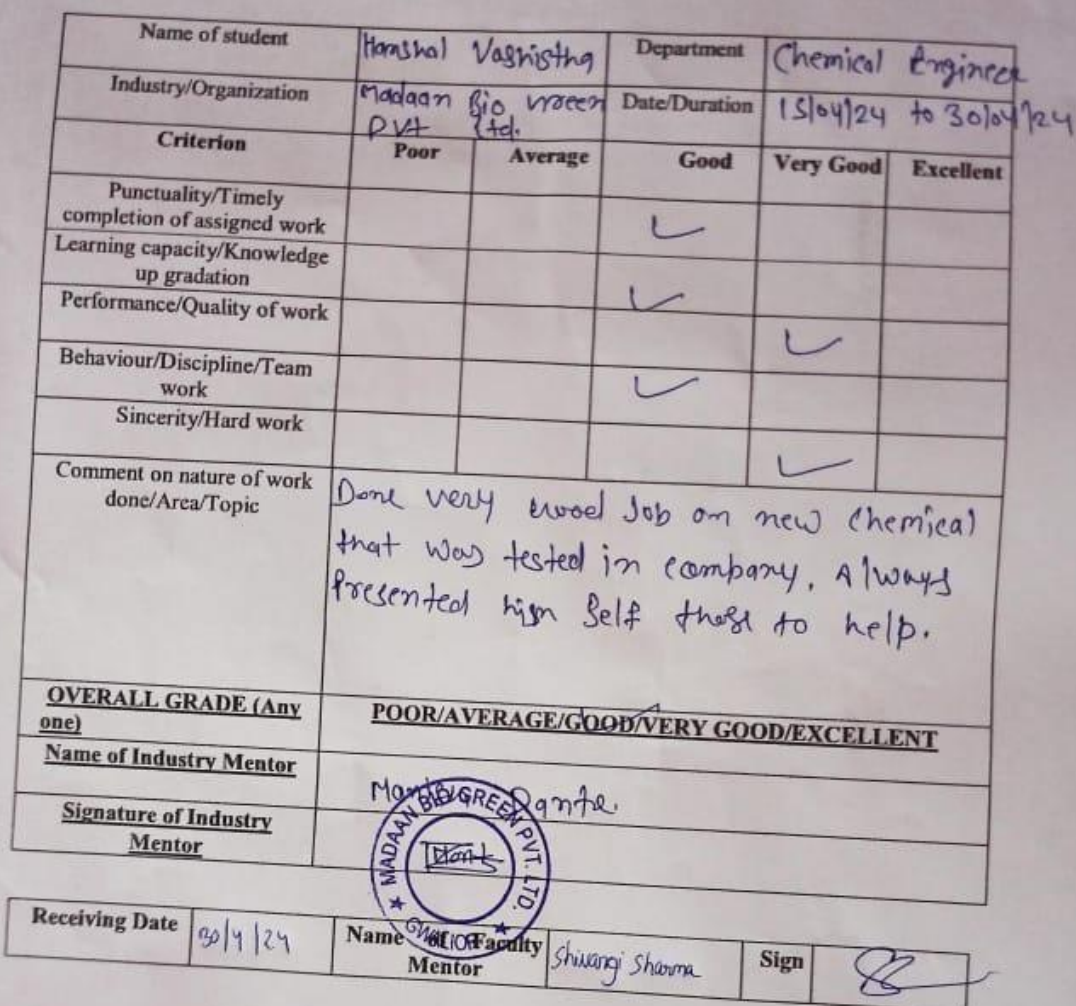 Name of student Hamshal Vashistha Department Chemical Engineer
Industry/Organization Madaan Bio Green Pvt Ltd. Date/Duration 15/04/24 to 30/04/24
Criterion Poor Average Good Very Good Excellent
Punctuality/Timely
completion of assigned work
Learning capacity/Knowledge
up gradation
Performance/Quality of work
Behaviour/Discipline/Team
work
Sincerity/Hard work
Comment on nature of work
done/Area/Topic
Done very Good Job on new Chemical
that was tested in company. Always
Presented him Self there to help.
OVERALL GRADE (Any
one)
POOR/AVERAGE/GOOD/VERY GOOD/EXCELLENT
Name of Industry Mentor
Signature of Industry
Mentor
MADAAN BIO GREEN PVT. LTD.
GWALIOR
Receiving Date 30/4/24 Name of Faculty
Mentor Shivangi Sharma Sign